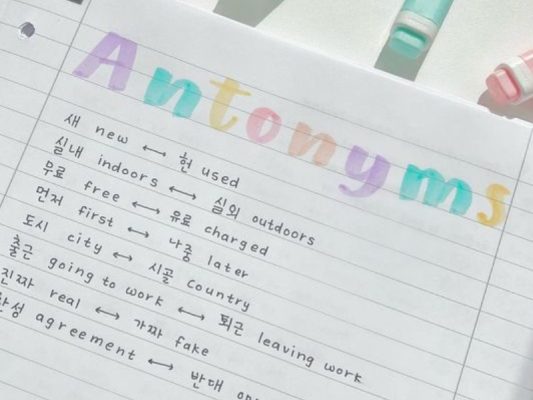 Antonyms
새 new ↔ 헌 used
실내 indoors ↔ 실외 outdoors
무료 free ↔ 유료 charged
먼저 first ↔ 나중 later
도시 city ↔ 시골 country
출근 going to work ↔ 퇴근 leaving work
진짜 real ↔ 가짜 fake
agreement ↔ 반대